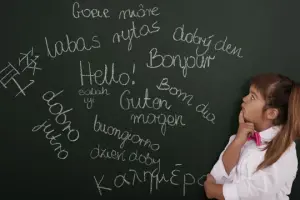 Goeie môre
labas rytas
dobrý den
Bonjour
Hello!
Bom dia
Guten
morgen
dobro
jutro
buongiorno
dzień doby
καλημέρα